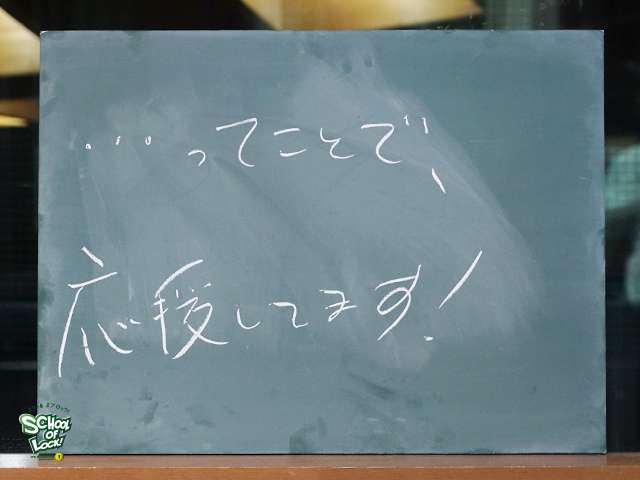 …ってことで、
応援してます!
SCHOOL
OF
LOCK!